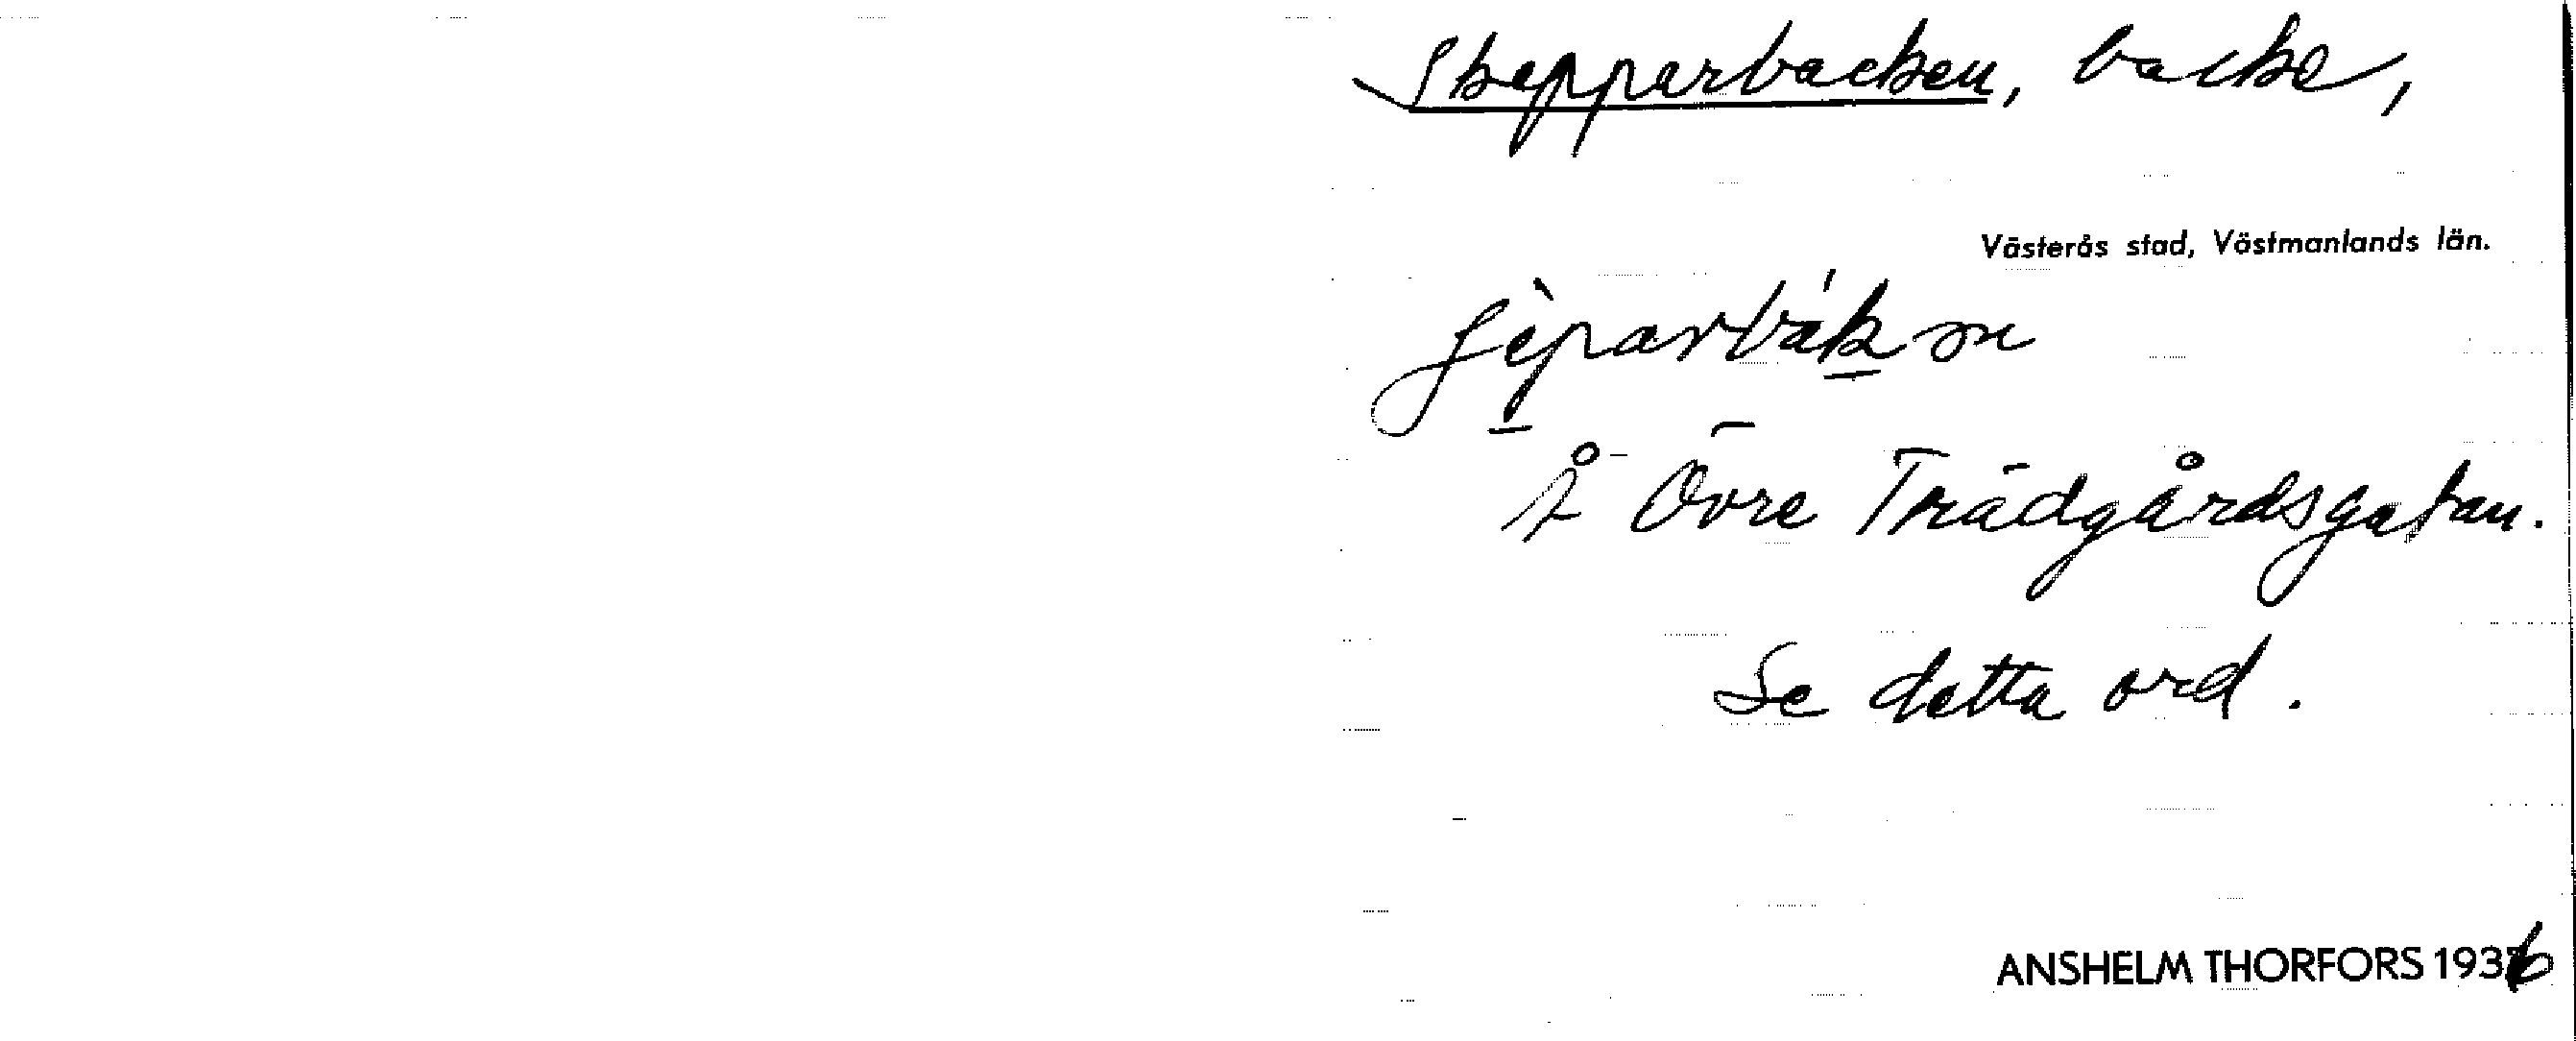 Skepparbacken, backe,
Västerås stad, Västmanlands län.
ʃèparbák͟ən
Å Övre Trädgårdsgatan.
Se detta ord.
ANSHELM THORFORS 1936